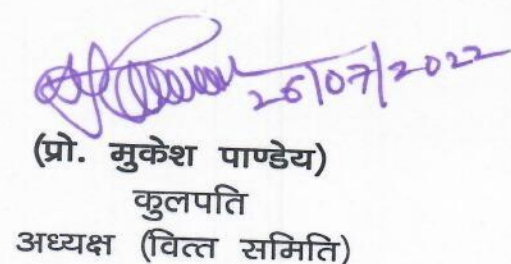 26/07/2022
(प्रो. मुकेश पाण्डेय)
कुलपति
अध्यक्ष (वित्त समिति)